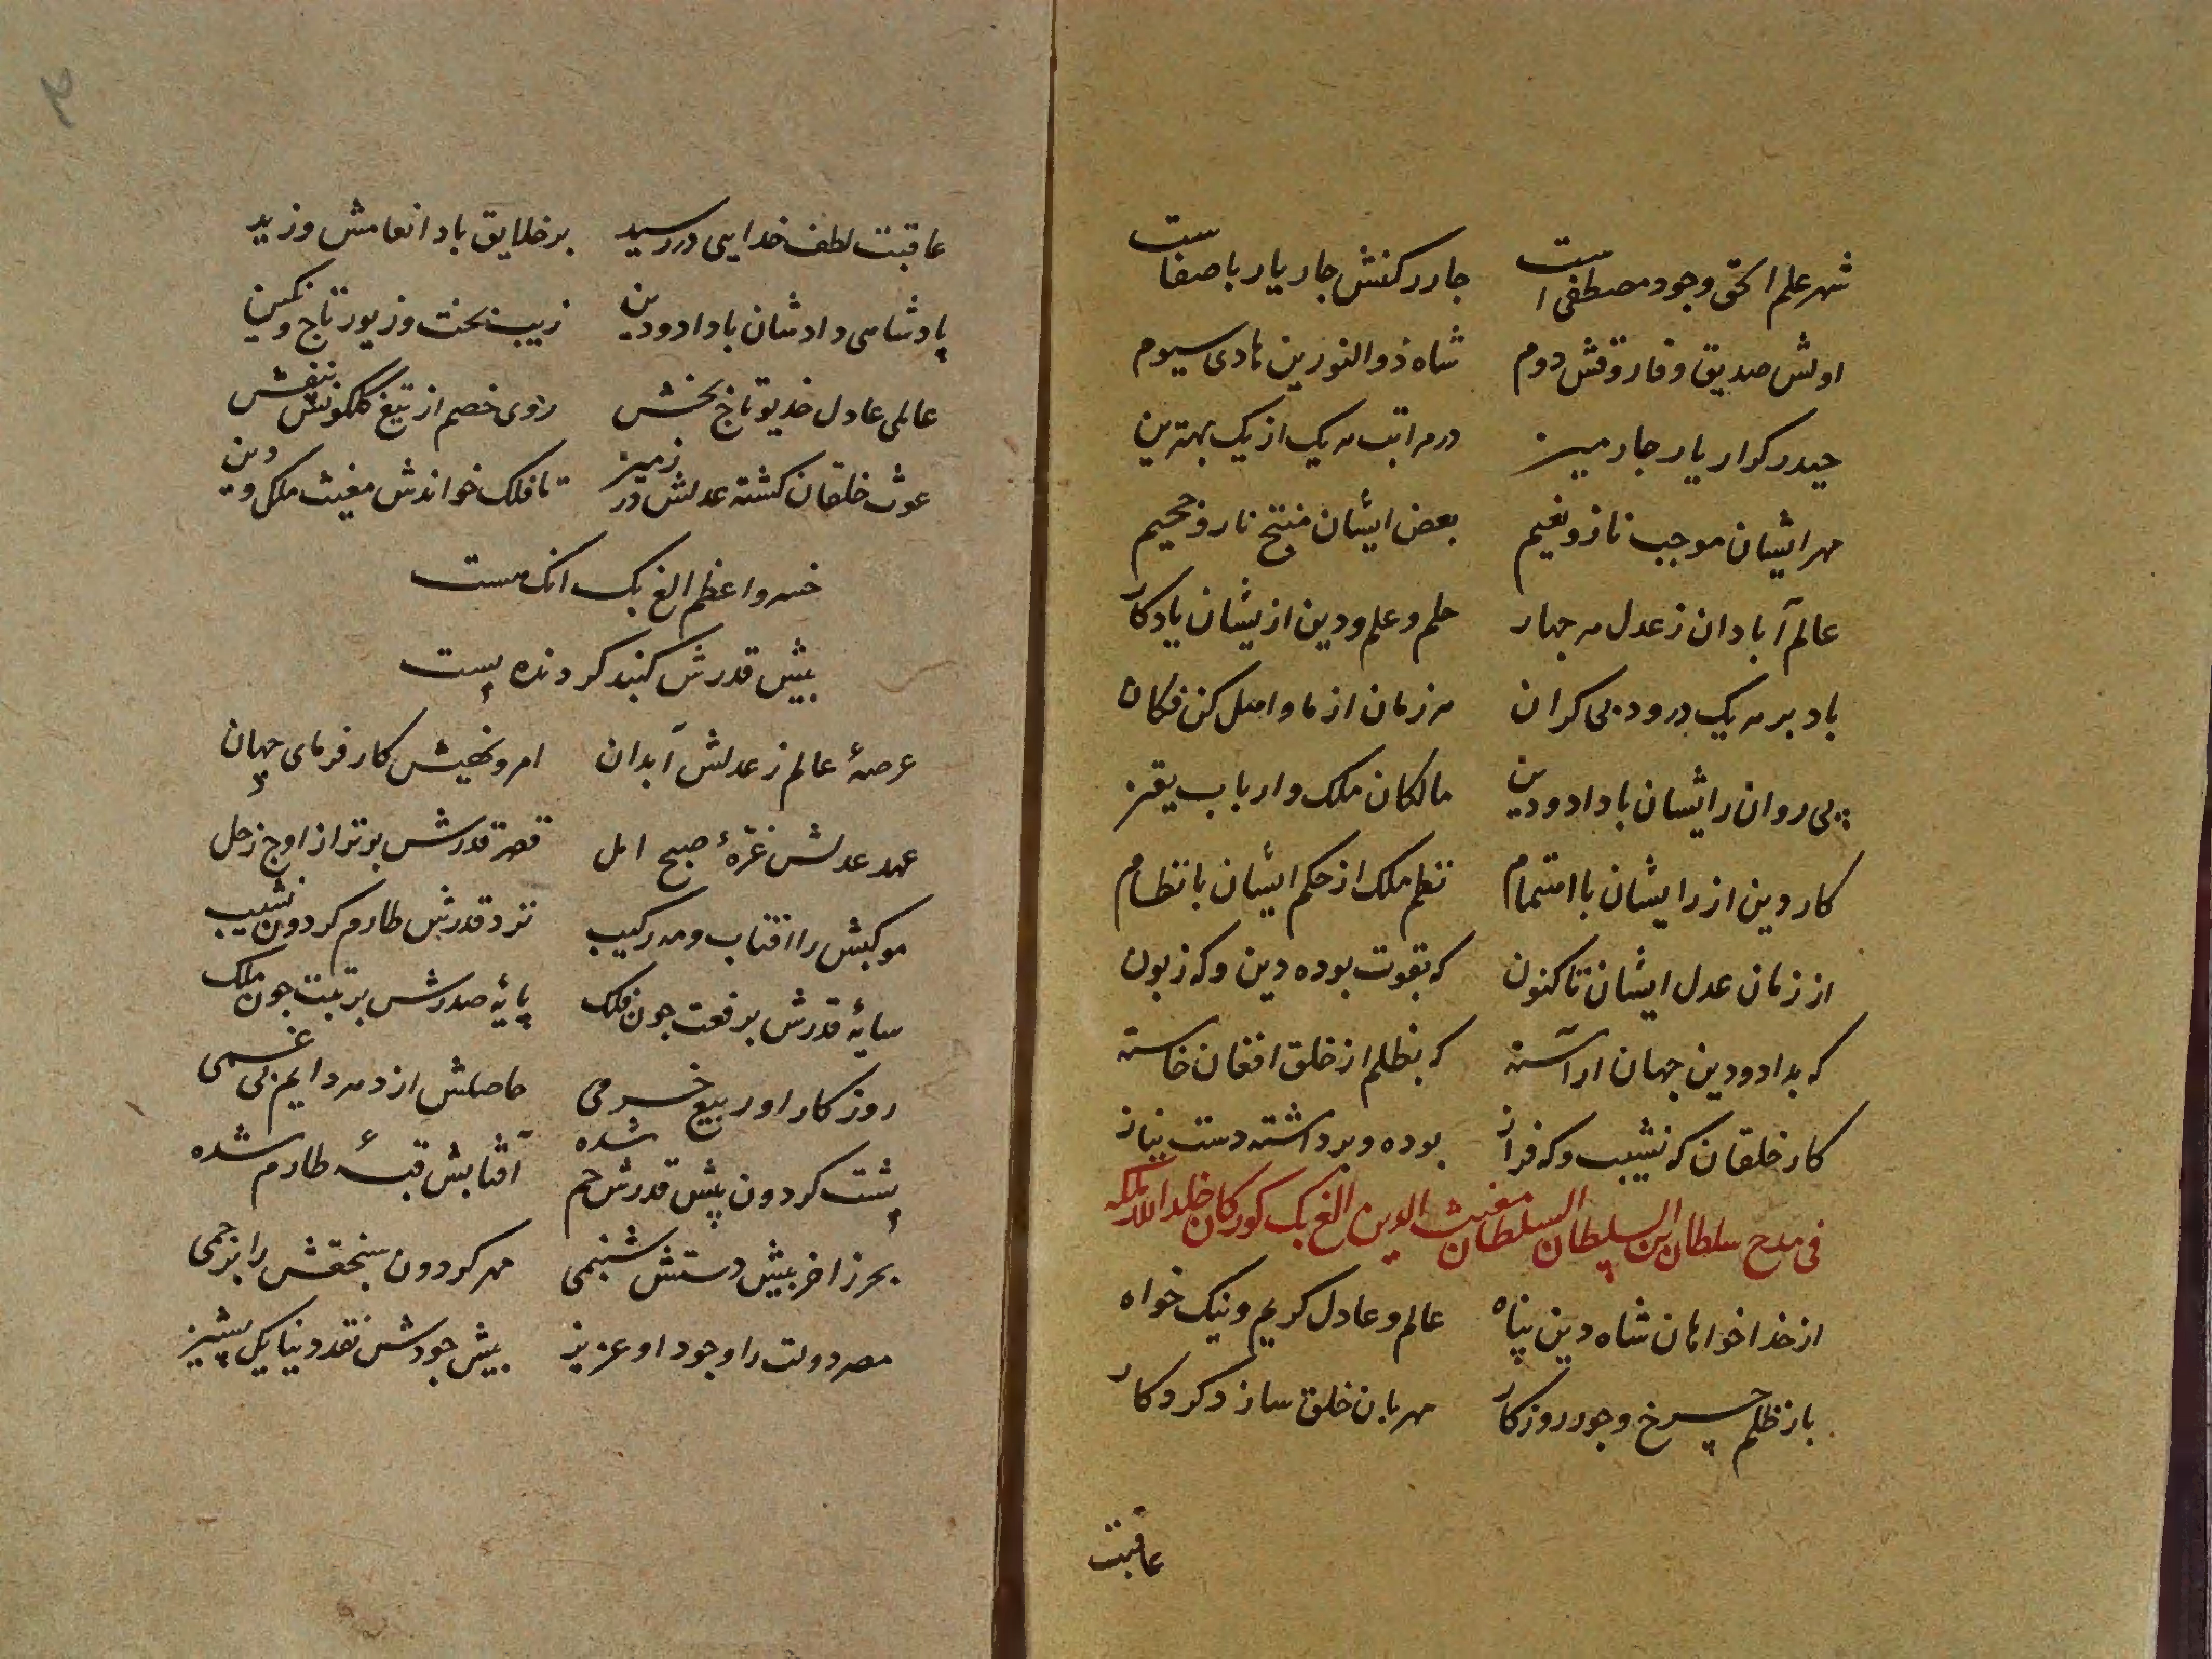 شهر علم الحق وجود مصطفی است جار رکنش جار یار باصفاست
اولش صدیق و فاروقش دوم شاه ذوالنورین هادی سیوم
حیدر کرار یار جارمین در مراتب هر یک از یک بهترین
مهر ایشان موجب ناز و نعیم بعض ایشان منتج نار و جحیم
عالم آبادان ز عدل هر جهار حلم و علم و دین ازیشان یادکار
باد بر هر یک درود بی کران هر زمان از ما و اهل کن فکان
پی روان رایشان با داد و دین مالکان ملک و ارباب یقین
کار دین از رایشان با اهتمام نظم ملک از حکم ایشان بانظام
از زمان عدل ایشان تا کنون که بقوت بوده دین و که زبون
که بداد و دین جهان اراسته که بظلم از خلق افغان خاسته
کار خلقان که نشیب و که فراز بوده و برداشته دست نیاز
فی مدح سلطان بن السلطان السلطان مغیث الدین الغ بک کورکان خلد الله ملکه
از خدا خواهان شاه دین پناه عالم و عادل کریم و نیک خواه
باز ظلم چرخ و جور روزکار مهربان خلق سازد کردکار
عاقبت
۲
عاقبت لطف خدایی در رسید بر خلایق باد انعامش وزید
پادشاهی دادشان با داد و دین زیب تخت و زیور تاج و نکین
عالمی عادل خدیو تاج بخش روی خصم از تیغ کلکونش بنفش
غوث خلقان کشته عدلش در زمین تا فلک خواندش مغیث ملک و دین
خسرو اعظم الغ بک انک هست
بیش قدرش کنبد کردنده پست
عرصهٔ عالم ز عدلش آبدان امر و نهیش کار فرمای جهان
عهد عدلش غرهٔ صبح امل قصر قدرش برتر از اوج زحل
موکبش را افتاب و مه رکیب نزد قدرش طارم کردون نشیب
سایهٔ قدرش برفعت جون فلک پایهٔ صدرش برتبت جون ملک
روزکار او ربیع خرمی حاصلش از دهر دایم بی غمی
پشت کردون پیش قدرش خم شده آفتابش قبهٔ طارم شده
بحر زاخر بیش دستش شبنمی مهر کردون سنجقش را برجمی
مصر دولت را وجود او عزیز بیش جودش نقد دنیا یک پشیز